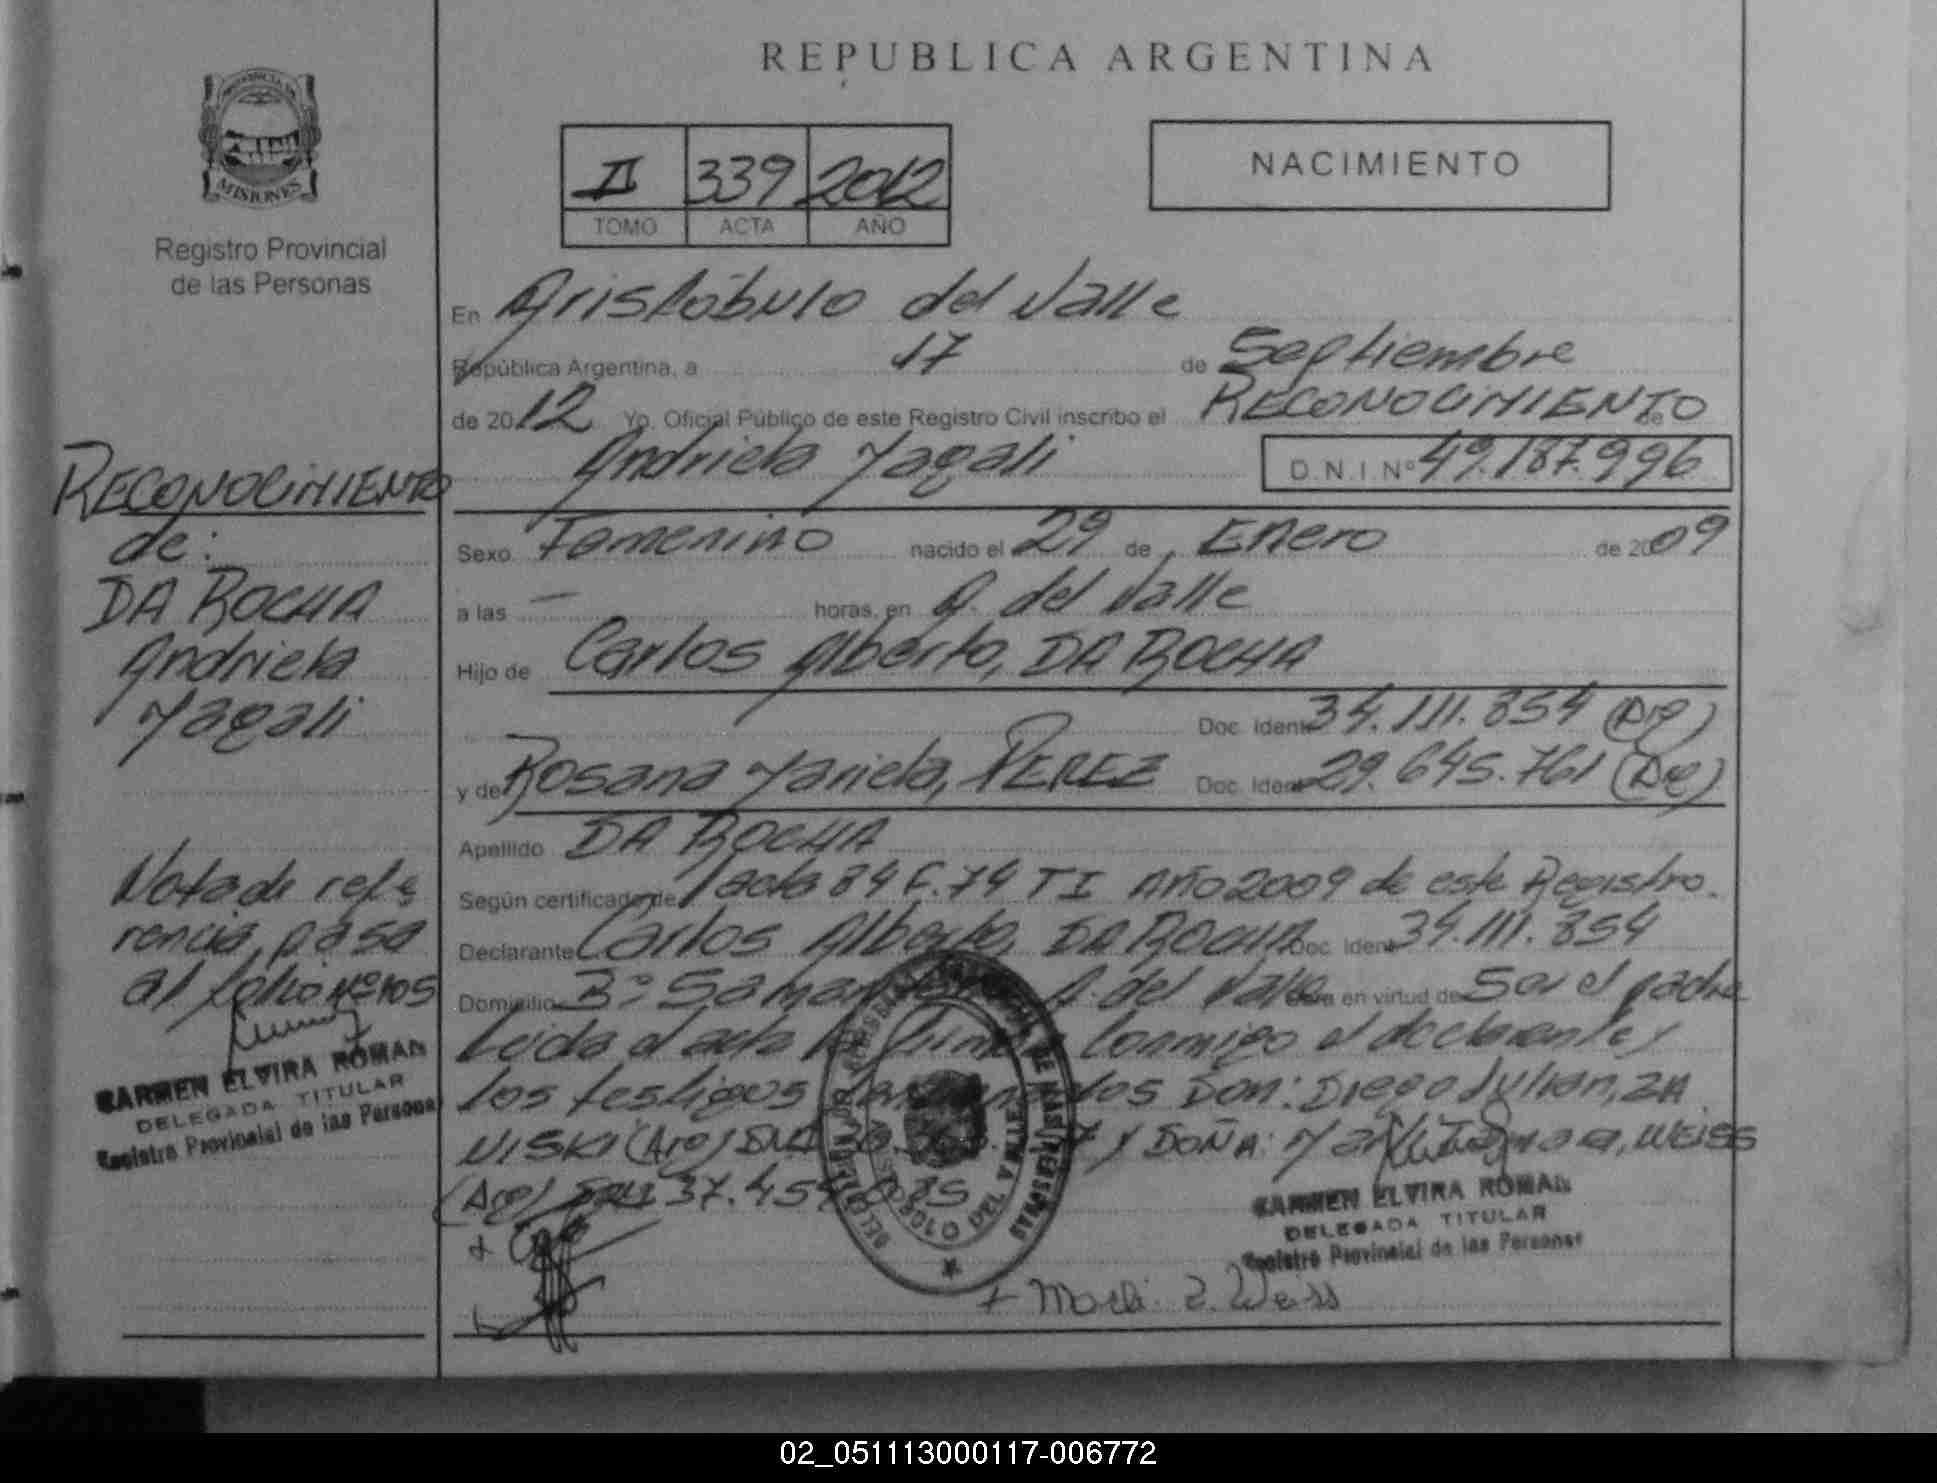 REPUBLICA ARGENTINA
PROVINCIA DE
MISIONES
Registro Provincial
de las Personas
II 339 2012
TOMO ACTA AÑO
NACIMIENTO
En Aristóbulo del Valle
República Argentina, a 17 de Septiembre
de 2012 Yo, Oficial Público de este Registro Civil inscribo el RECONOCIMIENTO de
Andriela Yagali D.N.I. Nº 49.187.996
Sexo Femenino nacido el 29 de Enero de 2009
a las — horas, en A. del Valle
Hijo de Carlos Alberto, DA ROCHA
Doc. Ident. 34.111.854 (Arg)
y de Rosana Mariela, PEREZ Doc. Ident. 29.645.761 (Arg)
Apellido DA ROCHA
Según certificado de acta 84 F. 74 TI Año 2009 de este Registro.
Declarante Carlos Alberto, DA ROCHA Doc. Ident. 34.111.854
Domicilio Bº A. del Valle en virtud de Ser el padre
Leida el acta la conmigo el declarante y
los testigos Don: Diego Julian, ZA
NISKI (Arg) DNI y DOÑA: WEISS
(Arg) DNI 37.454
RECONOCIMIENTO
de:
DA ROCHA
Andriela
Yagali
Nota de refe
rencia, pasa
al folio Nº 105
CARMEN ELVIRA ROMAN
DELEGADA TITULAR
Registro Provincial de las Personas
CARMEN ELVIRA ROMAN
DELEGADA TITULAR
Registro Provincial de las Personas
DEL VALLE
Weiss
02_051113000117-006772